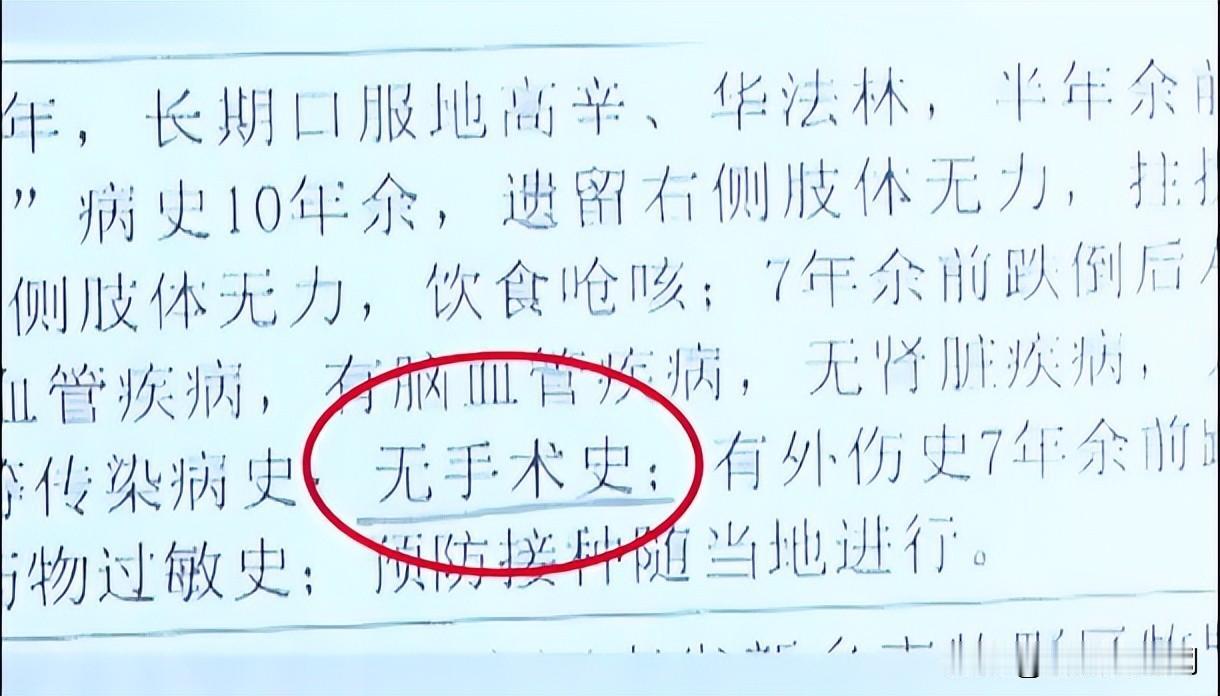 年，长期口服地高辛、华法林，半年余前
”病史10年余，遗留右侧肢体无力，拄
侧肢体无力，饮食呛咳；7年余前跌倒后
血管疾病，有脑血管疾病，无肾脏疾病，
传染病史 无手术史；有外伤史7年余前
物过敏史；预防接种随当地进行。